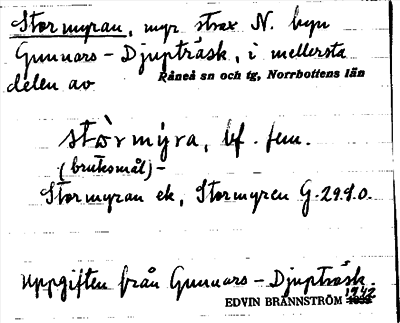 Stormyran, myr strax N. byn
Gunnars-Djupträsk, i mellersta
delen av Råneå sn och tg, Norrbottens län
stòrmýra, bf. fem.
(bruksmål) -
Stormyran ek, Stormyren G.29.9.0.
Uppgiften från Gunnars-Djupträsk.
EDVIN BRÄNNSTRÖM 1942